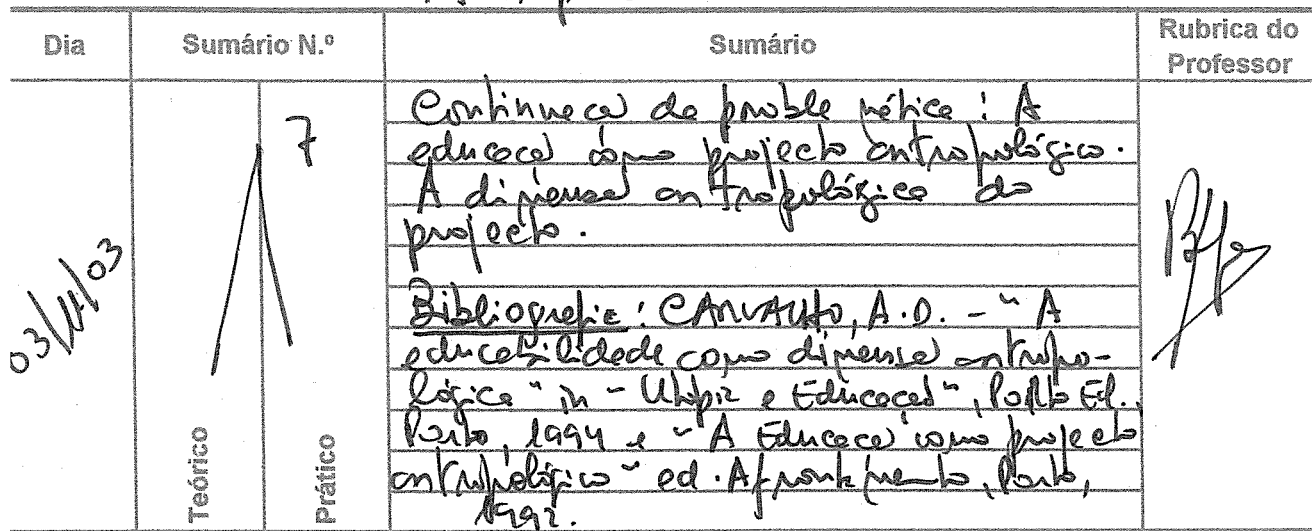 Dia Sumário N.º Sumário Rubrica do Professor
7
Continuação da problemática: A
educação como projecto antropológico.
A dimensão antropológica do
projecto.
03/11/03
Bibliografia: CARVALHO, A.D. - "A
educabilidade como dimensão antropo-
lógica" in - "Utopia e Educação", Porto Ed.,
Porto, 1994 e - "A Educação como projecto
antropológico" ed. Afrontamento, Porto,
1992.
Teórico Prático